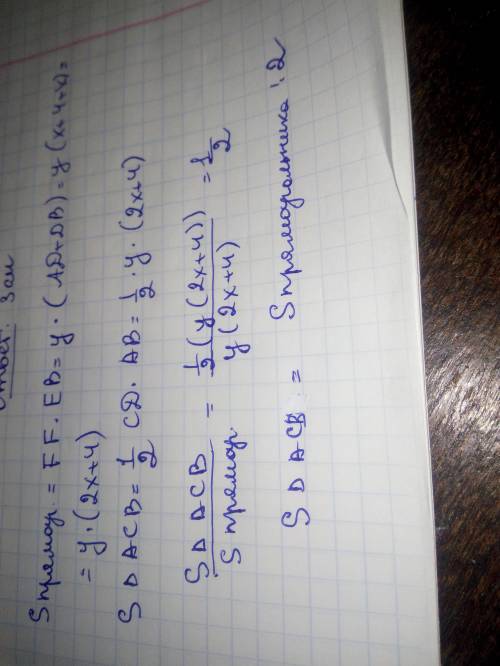 Ответ: 3 см
S прямоуг. = FF · EB = y · (AD+DB) = y (x+4+x) =
= y · (2x+4)
S △ ACB = 1/2 CD · AB = 1/2 · y · (2x+4)
S △ ACB / S прямоуг. = 1/2 (y (2x+4)) / y (2x+4) = 1/2
S △ ACB = S прямоугольника : 2